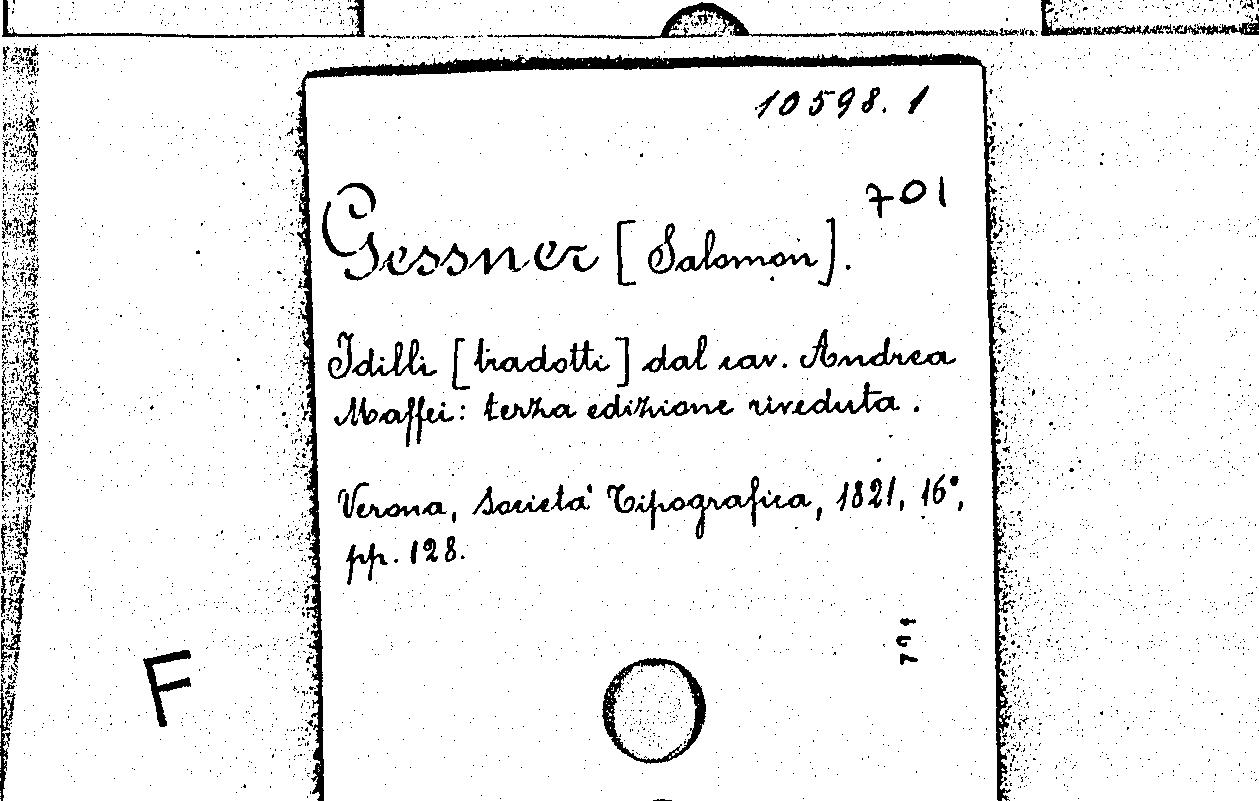 10598. 1
701
Gessner [Salomon].
Idilli [tradotti] dal cav. Andrea
Maffei: terza edizione riveduta.
Verona, Società Tipografica, 1821, 16°,
pp. 128.
F